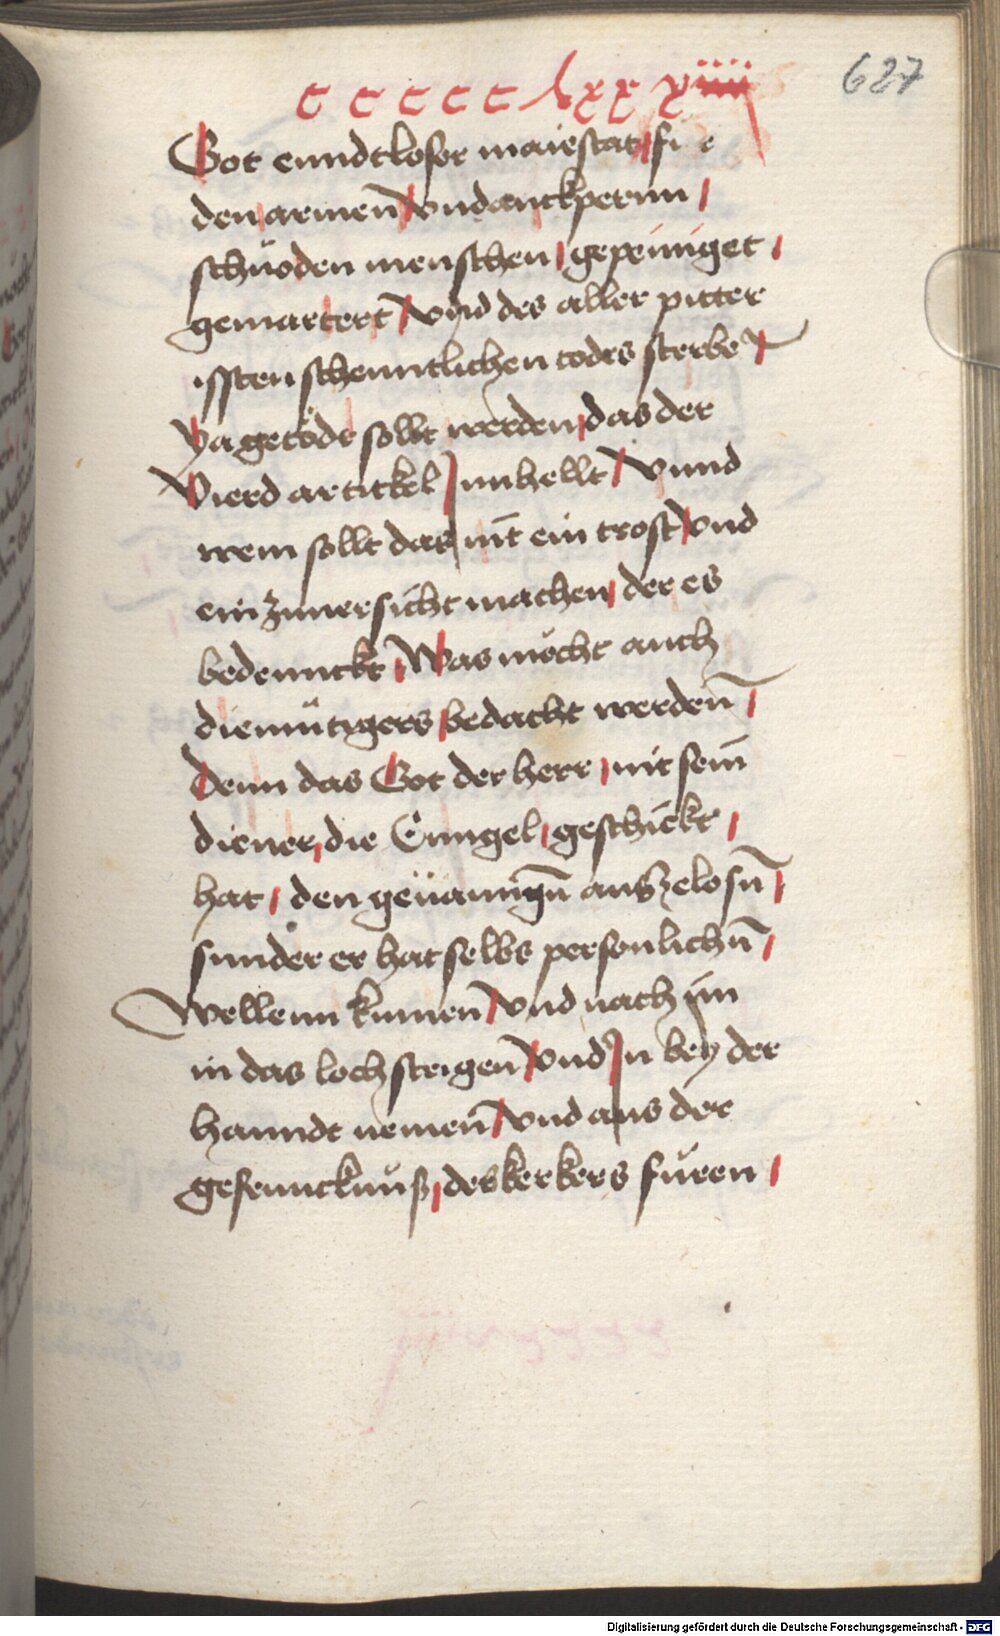 ccccc lxxx viiii
627
Got enndtloser maiestat / fu e
den armen̄ / vndanckpernn /
schnöden menschen / gepeiniget /
gemartert / vnd des aller pitter
issten schenntlichen todes sterbe /
ya getödt sollt werden / das der
vierd artickel / Innhellt / Vnnd
wem sollt das nit ein trost / vnd
ein zuuersicht machen / der es
bedennckt / Was möcht auch
diemütigers / bedacht werden̄ /
Denn das Got der herr / nit sein̄
diener, die Enngel / geschickt /
hat / den geuanngn̄ auszelosn̄ /
sunder er hat selbs personlichn̄ /
wellenn kumen̄ / vnd nach im
in das loch steigen̄ / vnd In bey der
hanndt nemen̄ / vnd aus der
gefenncknuß / des kerkers füren /
Digitalisierung gefördert durch die Deutsche Forschungsgemeinschaft - DFG